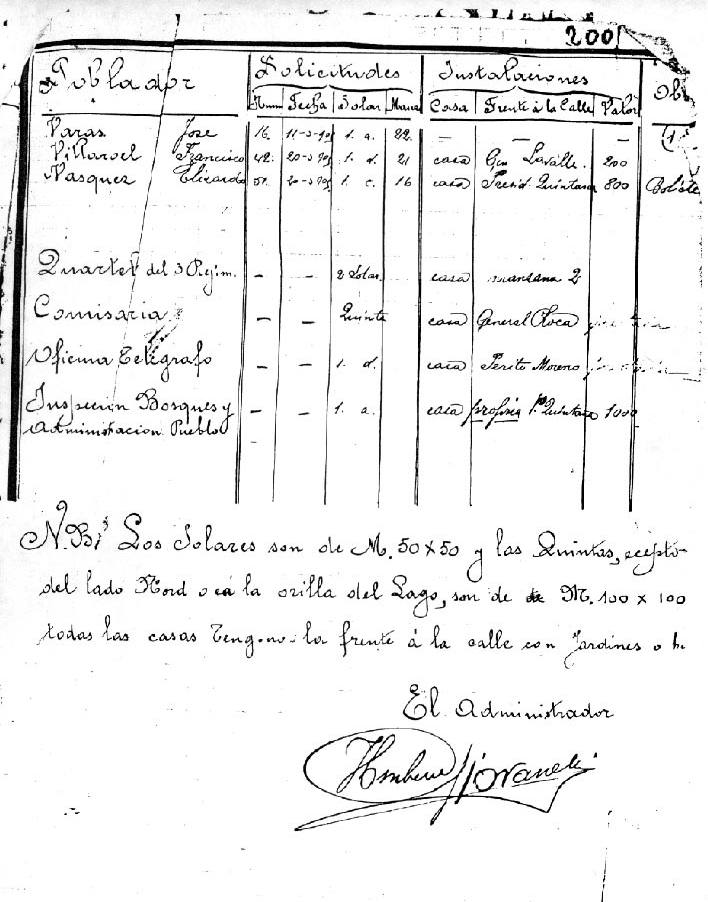 200
Poblador Solicitudes Instalaciones
Num Fecha Solar Manz Casa Frente á la Calle Valor Ob
Varas José 16. 11-3-905 1. a. 22. — — —
Villaroel Francisco 42. 20-3-905 1. d. 21 casa Gen Lavalle. 200
Vasquez Elizardo 51. 20-3-905 1. c. 16 casa Presid. Quintana 800 Boléte
Quartel del 3 Regim. — — 2 Solar. casa manzana 2.
Comisaria — — Quinta casa General Roca
Oficina Telégrafo — — 1. d. casa Perito Moreno
Inspeción Bosques y — — 1. a. casa propria Pte Quintana 1000
Administracion Pueblo
N.B. Los Solares son de M. 50 x 50 y las Quintas, ecepto
del lado Nord o a la orilla del Lago, son de M. 100 x 100
todas las casas Tengono la frente á la calle con Jardines o
El Administrador